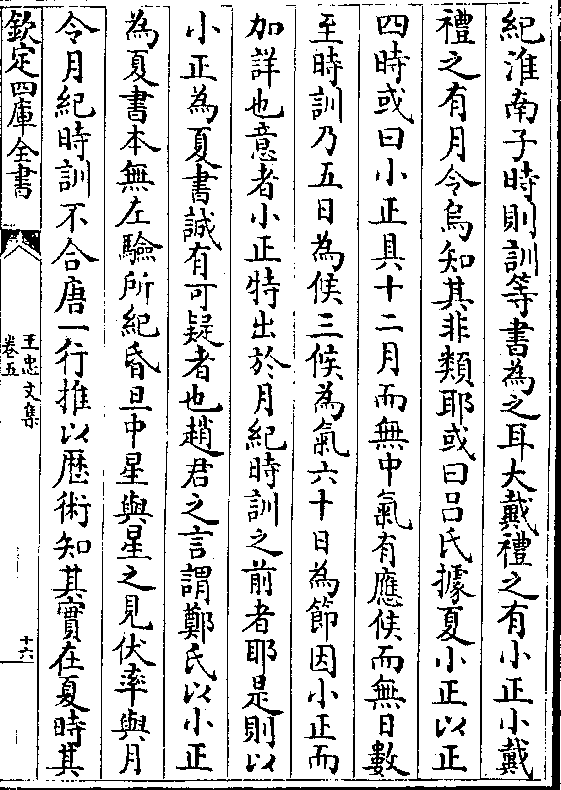 紀淮南子時則訓等書為之耳大戴禮之有小正小戴
禮之有月令烏知其非類耶或曰吕氏據夏小正以正
四時或曰小正具十二月而無中氣有應候而無日數
至時訓乃五日為候三候為氣六十日為節因小正而
加詳也意者小正特出於月紀時訓之前者耶是則以
小正為夏書誠有可疑者也趙君之言謂鄭氏以小正
為夏書本無左驗所紀昏旦中星與星之見伏率與月
令月紀時訓不合唐一行推以厯術知其實在夏時其
欽定四庫全書
王忠文集
卷五
十六